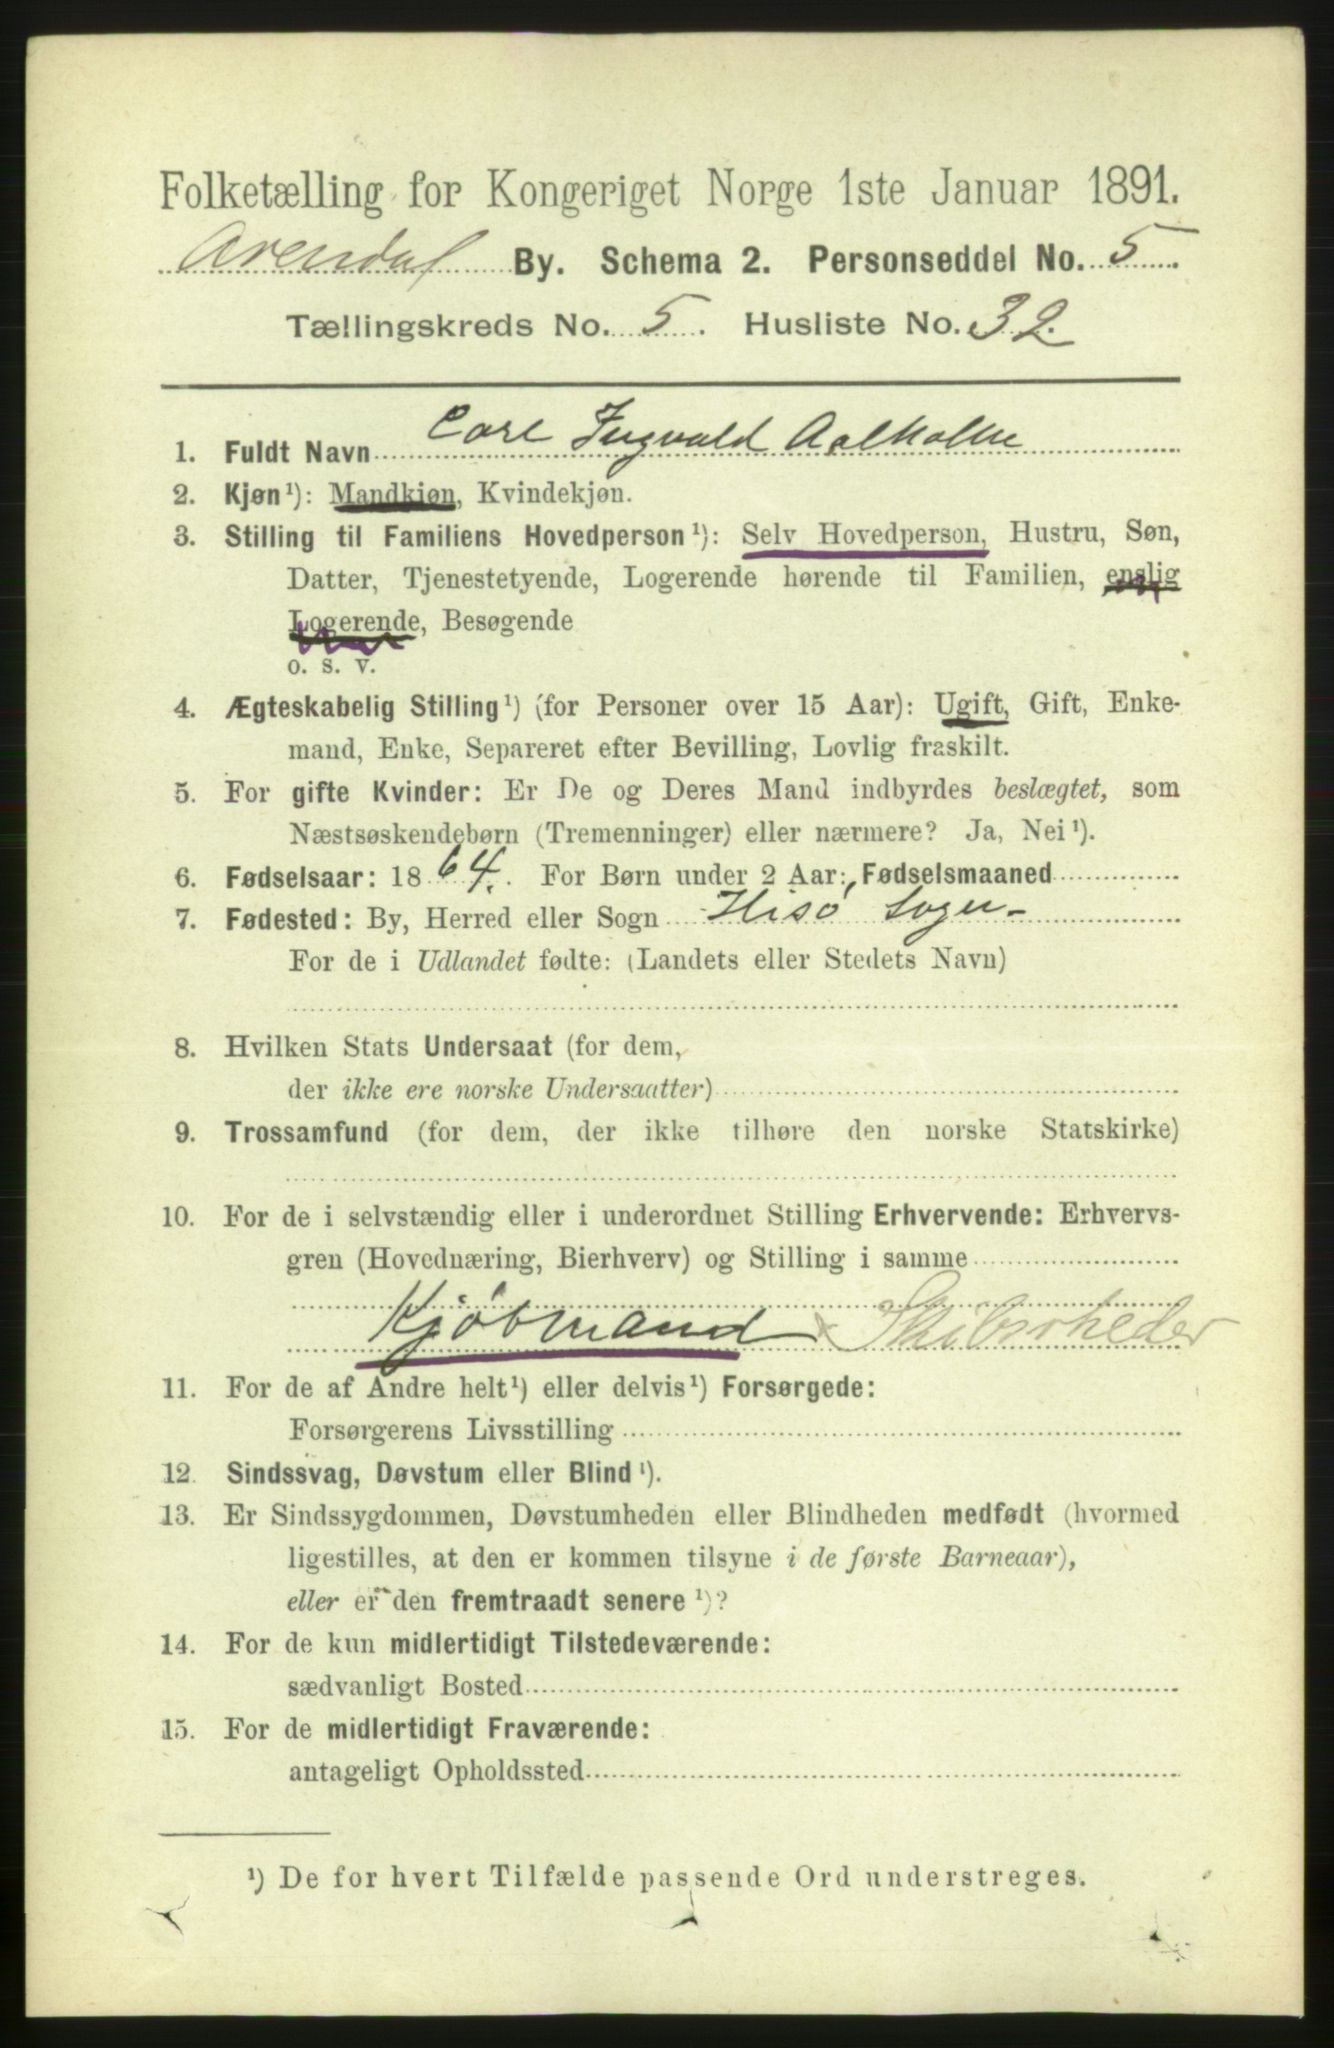 Folketælling for Kongeriget Norge 1ste Januar 1891.
Arendal By. Schema 2. Personseddel No. 5
Tællingskreds No. 5. Husliste No. 32.
1. Fuldt Navn Carl Ingvald Aalholm
2. Kjøn¹): Mandkjøn, Kvindekjøn.
3. Stilling til Familiens Hovedperson¹): Selv Hovedperson, Hustru, Søn,
Datter, Tjenestetyende, Logerende hørende til Familien, enslig
Logerende, Besøgende
o. s. v.
4. Ægteskabelig Stilling¹) (for Personer over 15 Aar): Ugift, Gift, Enke-
mand, Enke, Separeret efter Bevilling, Lovlig fraskilt.
5. For gifte Kvinder: Er De og Deres Mand indbyrdes beslægtet, som
Næstsøskendebørn (Tremenninger) eller nærmere? Ja, Nei¹).
6. Fødselsaar: 1864. For Børn under 2 Aar: Fødselsmaaned
7. Fødested: By, Herred eller Sogn Hisö Sogn
For de i Udlandet fødte: (Landets eller Stedets Navn)
8. Hvilken Stats Undersaat (for dem,
der ikke ere norske Undersaatter)
9. Trossamfund (for dem, der ikke tilhøre den norske Statskirke)
10. For de i selvstændig eller i underordnet Stilling Erhvervende: Erhvervs-
gren (Hovednæring, Bierhverv) og Stilling i samme
Kjöbmand x Skibsrheder
11. For de af Andre helt¹) eller delvis¹) Forsørgede:
Forsørgerens Livsstilling
12. Sindssvag, Døvstum eller Blind¹).
13. Er Sindssygdommen, Døvstumheden eller Blindheden medfødt (hvormed
ligestilles, at den er kommen tilsyne i de første Barneaar),
eller er den fremtraadt senere¹)?
14. For de kun midlertidigt Tilstedeværende:
sædvanligt Bosted
15. For de midlertidigt Fraværende:
antageligt Opholdssted
¹) De for hvert Tilfælde passende Ord understreges.